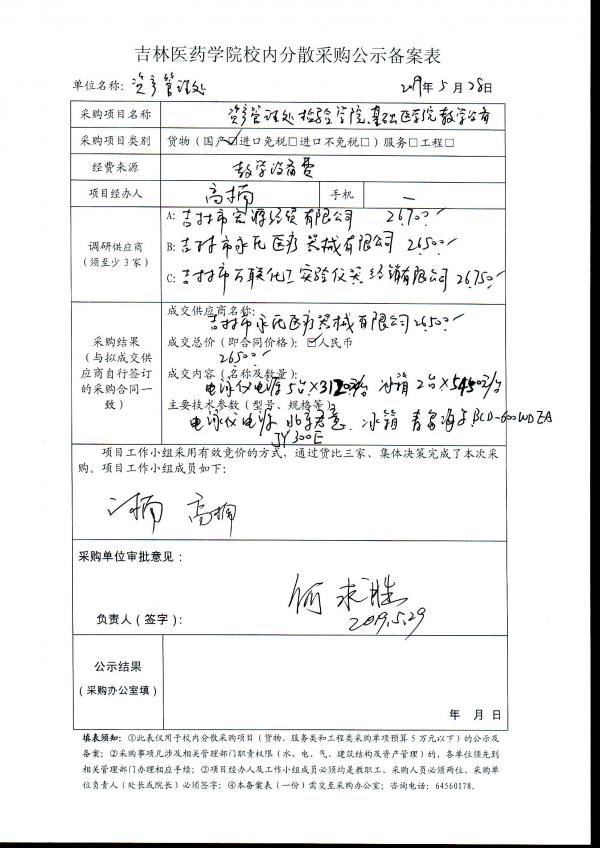 吉林医药学院校内分散采购公示备案表
单位名称：资产管理处 2019年5月28日
采购项目名称 资产管理处检验学院、基础医学院教学设备
采购项目类别 货物（国产☑进口免税□进口不免税□）服务□工程□
经费来源 教学设备费
项目经办人 高楠 手机 —
调研供应商
（须至少3家）
A: 吉林市宏源经贸有限公司 26700.-
B: 吉林市永氏医疗器械有限公司 26500.-
C: 吉林市石联化工实验仪器经销有限公司 26750.-
采购结果
（与拟成交供
应商自行签订
的采购合同一
致）
成交供应商名称：
吉林市永氏医疗器械有限公司 26500.-
成交总价（即合同价格）：☑人民币
26500.-
成交内容（名称及数量）：
电泳仪电源5台×3120元/台 冰箱2台×5450元/台
主要技术参数（型号、规格等）：
电泳仪电源 北京君意 冰箱 青岛海尔BCD-600WDEA
JY300E
项目工作小组采用有效竞价的方式，通过货比三家、集体决策完成了本次采
购。项目工作小组成员如下：
高楠
采购单位审批意见：
负责人（签字）：
2019.5.29
公示结果
（采购办公室填）
年 月 日
填表须知：①此表仅用于校内分散采购项目（货物、服务类和工程类采购单项预算5万元以下）的公示及
备案；②采购事项凡涉及相关管理部门职责权限（水、电、气、建筑结构及资产管理）的，各单位须先到
相关管理部门办理相应手续；③项目经办人及工作小组成员必须均是教职工、采购人员必须两位，采购单
位负责人（处长或院长）必须签字；④本备案表（一份）需交至采购办公室；咨询电话：64560178。